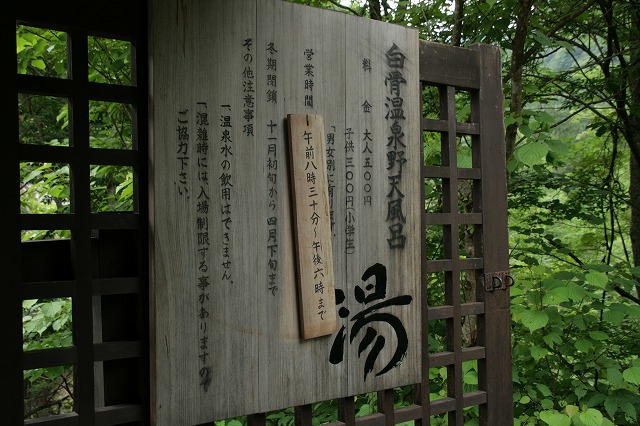 白骨温泉野天風呂
料　金　大人五〇〇円
子供三〇〇円(小学生)
「男女別に有ります。
営業時間
午前八時三十分～午後六時まで
冬期閉鎖　十一月初旬から四月下旬まで
その他注意事項
一、温泉水の飲用はできません。
一、混雑時には入場制限する事がありますので
ご協力下さい。
湯